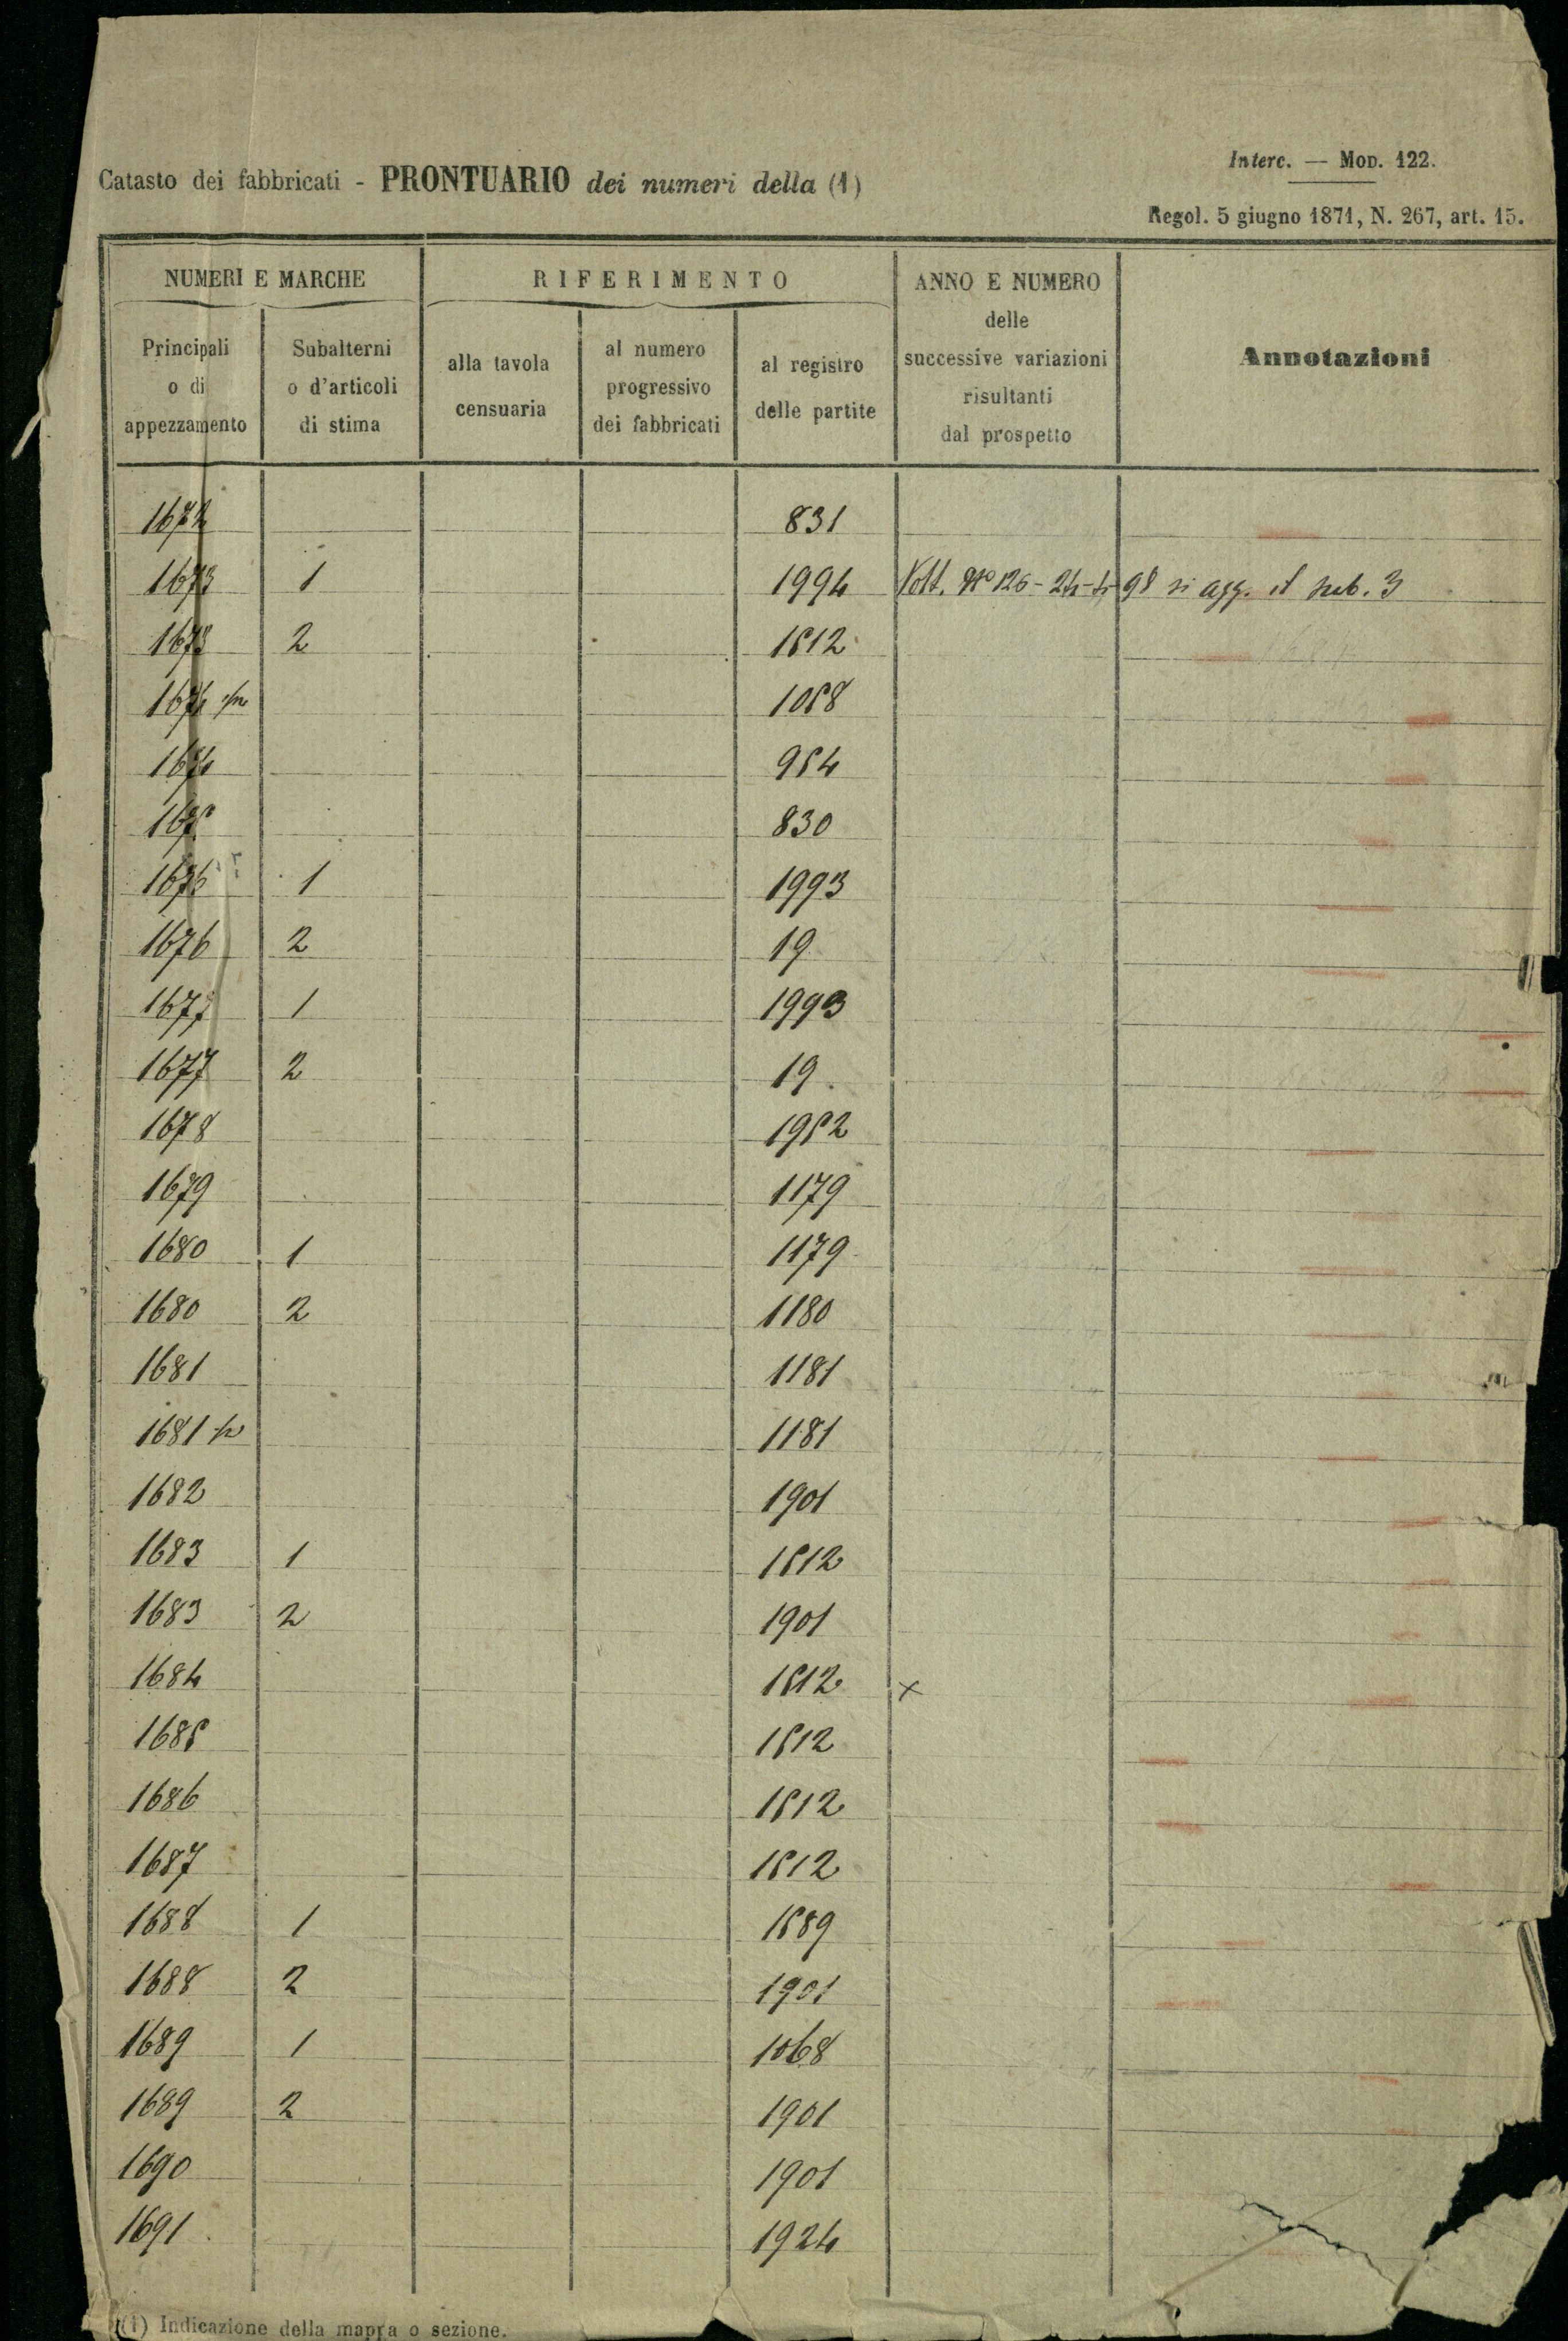 Interc. — Mod. 122.
Catasto dei fabbricati - PRONTUARIO dei numeri della (1)
Regol. 5 giugno 1871, N. 267, art. 15.
NUMERI E MARCHE
RIFERIMENTO
ANNO E NUMERO
delle
successive variazioni
risultanti
dal prospetto
Annotazioni
Principali
o di
appezzamento
Subalterni
o d'articoli
di stima
alla tavola
censuaria
al numero
progressivo
dei fabbricati
al registro
delle partite
1672 831
1673 1 1994 Volt. No 126-24-4-98 si agg. il sub. 3
1673 2 1512
1674 1058
1674 954
1675 830
1676 1 1993
1676 2 19
1677 1 1993
1677 2 19
1678 1952
1679 1179
1680 1 1179
1680 2 1180
1681 1181
1681 1181
1682 1901
1683 1 1512
1683 2 1901
1684 1512 x
1685 1512
1686 1512
1687 1512
1688 1 1589
1688 2 1901
1689 1 1068
1689 2 1901
1690 1901
1691 1924
(1) Indicazione della mappa o sezione.